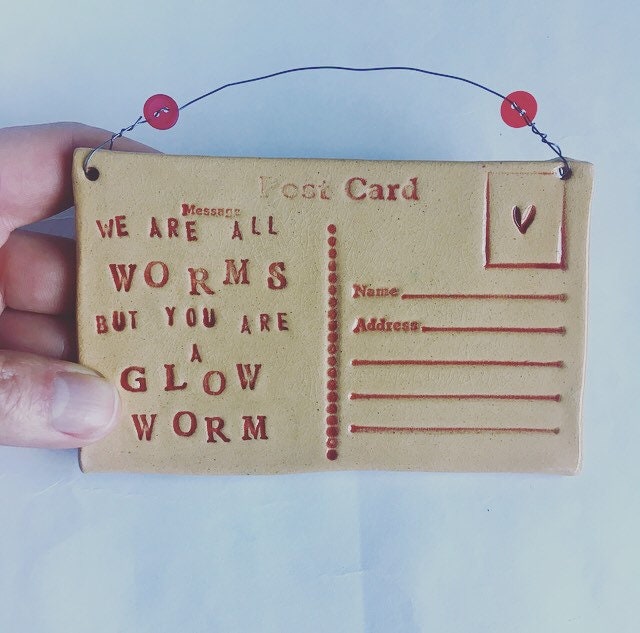 Post Card
Message
WE ARE ALL
WORMS
BUT YOU ARE
A
GLOW
WORM
Name
Address